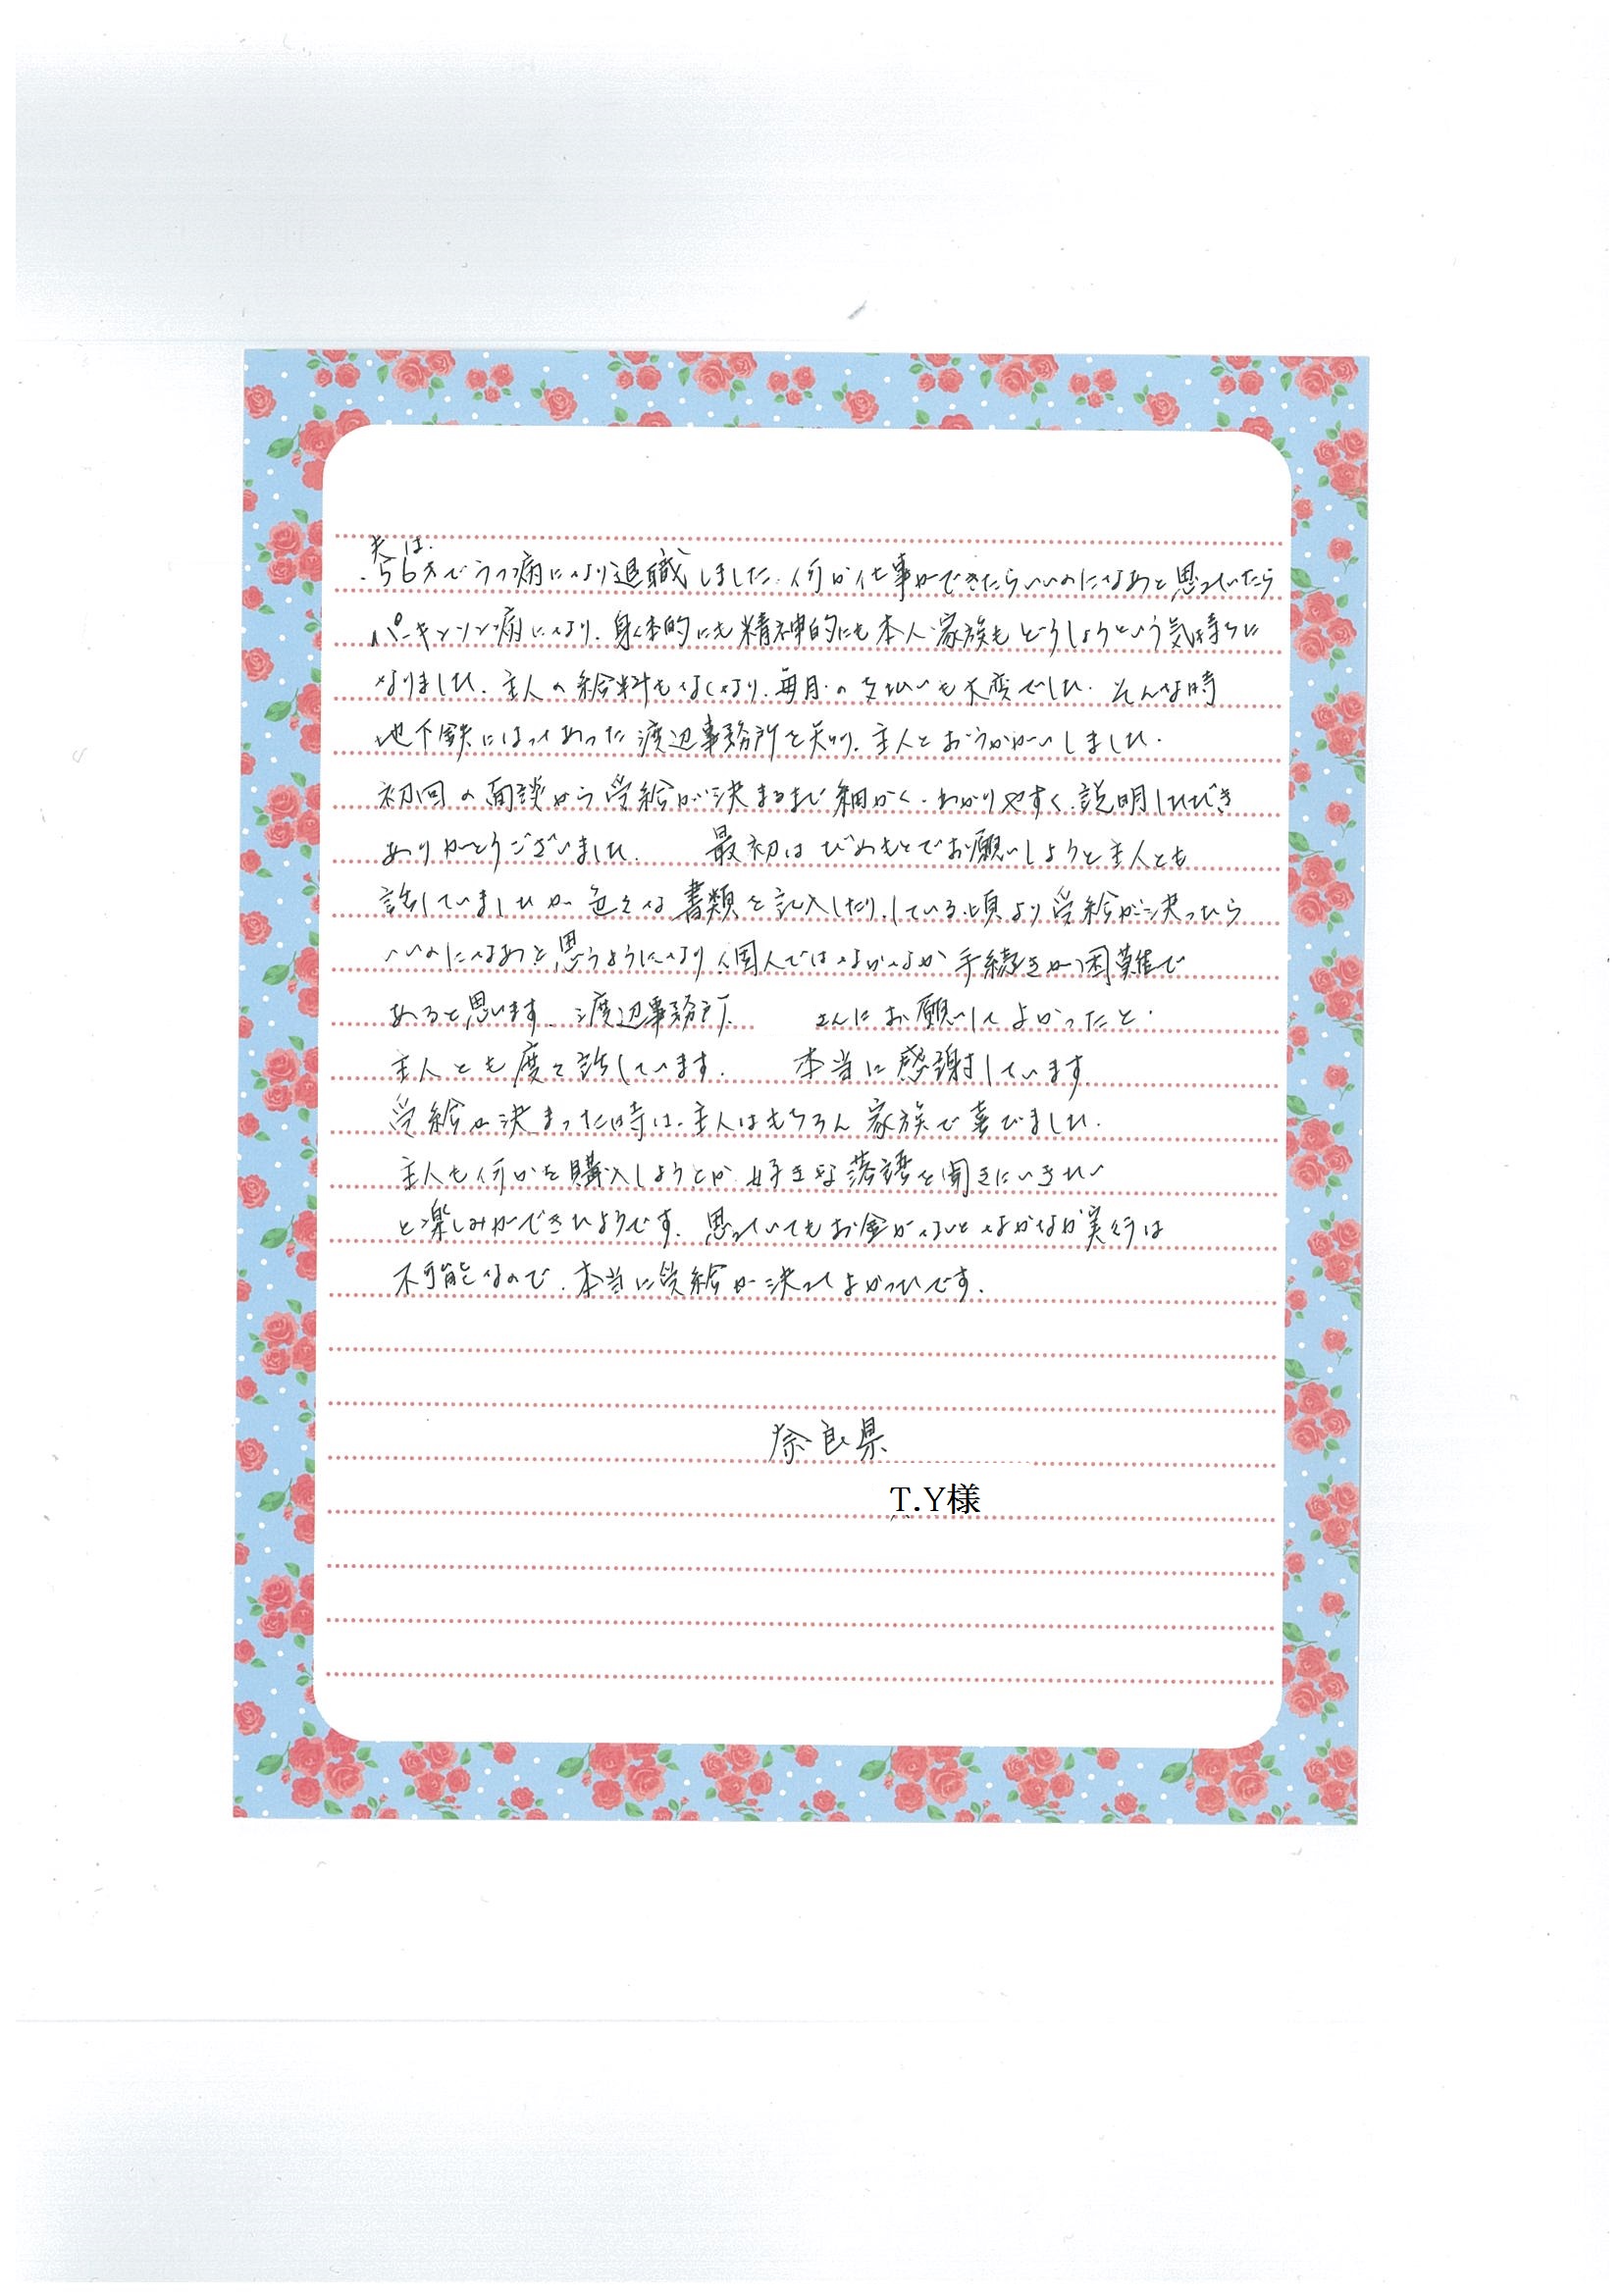 夫は、
56才でうつ病により退職しました。何か仕事ができたらいいのになあと思っていたら
パーキンソン病になり、身体的にも精神的にも本人、家族もどうしようという気持ちに
なりました。主人の給料もなくなり、毎月の支払いも大変でした。そんな時
地下鉄にはってあった渡辺事務所を知り、主人とおうかがいしました。
初回の面談から受給が決まるまで細かく、わかりやすく、説明しただき
ありがとうございました。 最初はだめもとでお願いしようと主人とも
話していましたが色々な書類を記入したり、している頃より受給が決ったら
いいのになあと思うようになり、個人ではなかなか手続きが困難で
あると思います。渡辺事務所 さんにお願いしてよかったと、
主人とも度々話しています。 本当に感謝しています。
受給が決まった時は、主人はもちろん家族で喜びました。
主人も何かを購入しようとか、好きな落語を聞きにいきたい
と楽しみができたようです。思っていてもお金がないとなかなか実行は
不可能なので、本当に受給が決ってよかったです。
奈良県
T.Y様